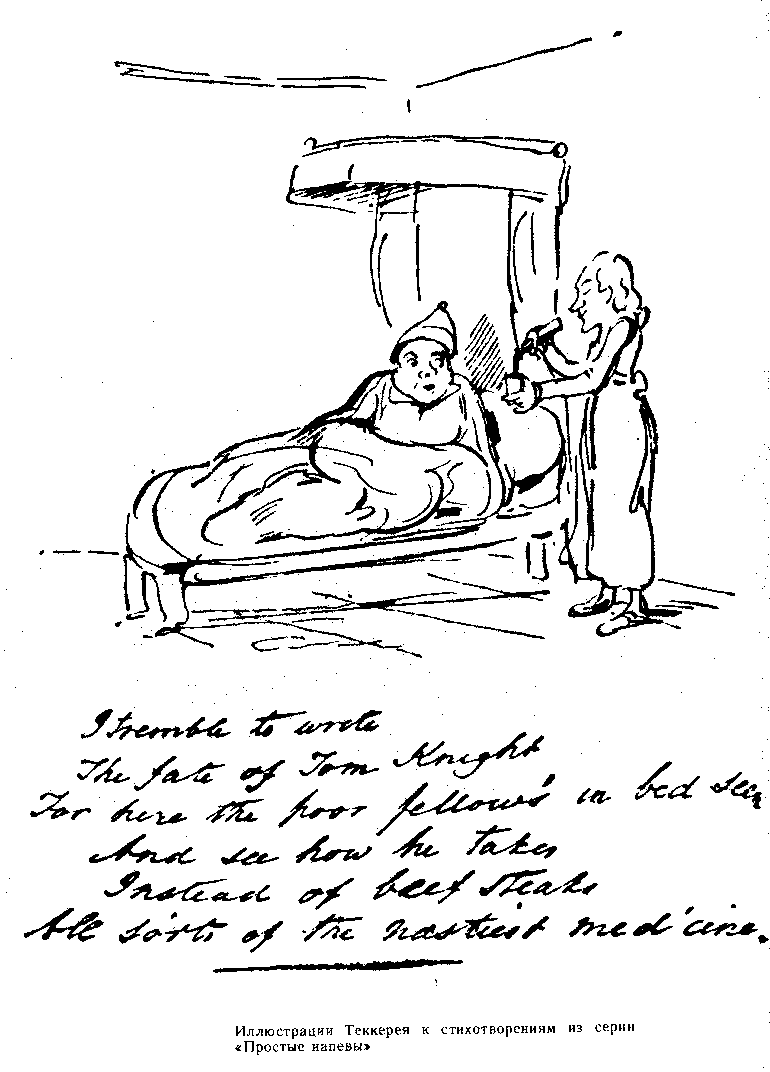 I tremble to write
The fate of Tom Knight
For here the poor fellow's in bed seen
And see how he takes
Instead of beef steaks
All sorts of the nastiest med'cine.
Иллюстрации Теккерея к стихотворениям из серии
«Простые напевы»